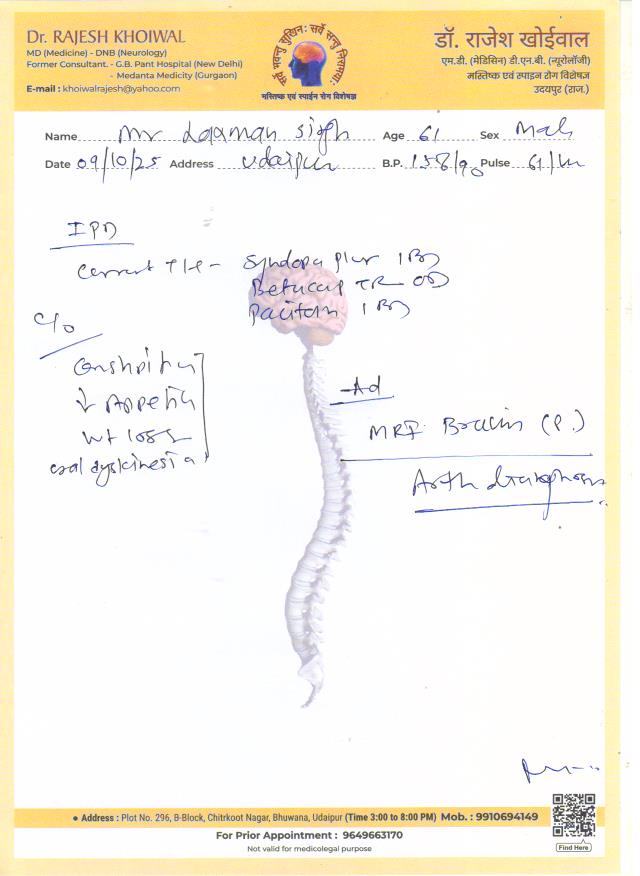 Dr. RAJESH KHOIWAL
MD (Medicine) - DNB (Neurology)
Former Consultant. - G.B. Pant Hospital (New Delhi)
- Medanta Medicity (Gurgaon)
E-mail : khoiwalrajesh@yahoo.com
सर्वे भवन्तु सुखिनः सर्वे सन्तु निरामयाः
मस्तिष्क एवं स्पाईन रोग विशेषज्ञ
डॉ. राजेश खोईवाल
एम.डी. (मेडिसिन) डी.एन.बी. (न्यूरोलॉजी)
मस्तिष्क एवं स्पाइन रोग विशेषज्ञ
उदयपुर (राज.)
Name Mr Laxman Singh Age 61 Sex Male
Date 09/10/25 Address Udaipur B.P. 158/90 Pulse 61/m
IPD
Current T/t - Syndopa plus 1 BD
TR OD
Pacitane 1 BD
C/o
Constipation
↓ Appetite
Wt loss
oral dyskinesia
Ad
MRI Brain (P.)
• Address : Plot No. 296, B-Block, Chitrkoot Nagar, Bhuwana, Udaipur (Time 3:00 to 8:00 PM) Mob. : 9910694149
For Prior Appointment : 9649663170
Not valid for medicolegal purpose
Find Here